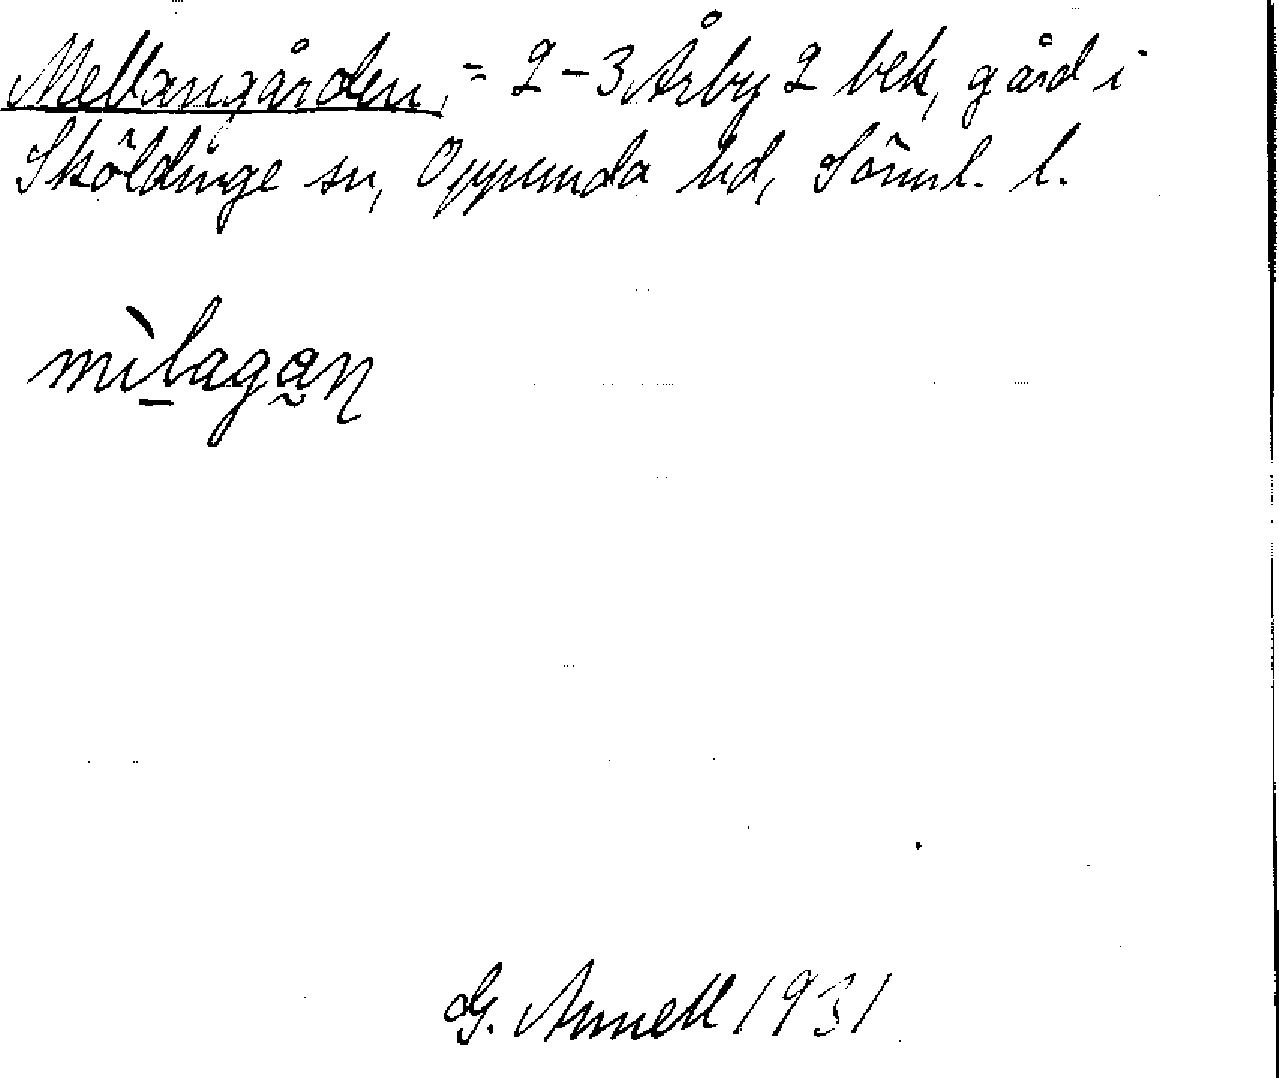 Mellangården, = 2-3 Årby 2 bek, gård i
Sköldinge sn, Oppunda hd, Sörml. l.
mìlagan
G. Annell 1931